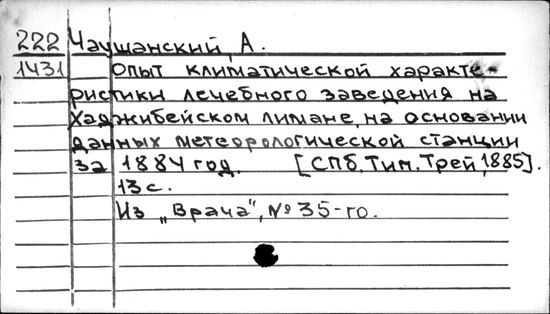 222 Чаушанский, А.
1431 Опыт климатической характе-
ристики лечебного заведения на
Хаджибейском лимане, на основании
данных метеорологической станции
за 1884 год. [СПб, Тип. Трей, 1885].
13 с.
Из „Врача", № 35-го.